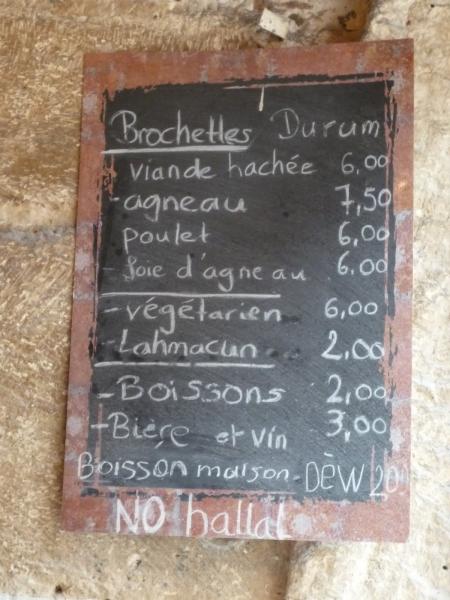 Brochettes Durum
viande hachée 6,00
-agneau 7,50
poulet 6,00
- foie d'agneau 6,00
-végétarien 6,00
-Lahmacun 2,00
-Boissons 2,00
-Bière et vin 3,00
Boisson maison-DÈW 20
NO hallal